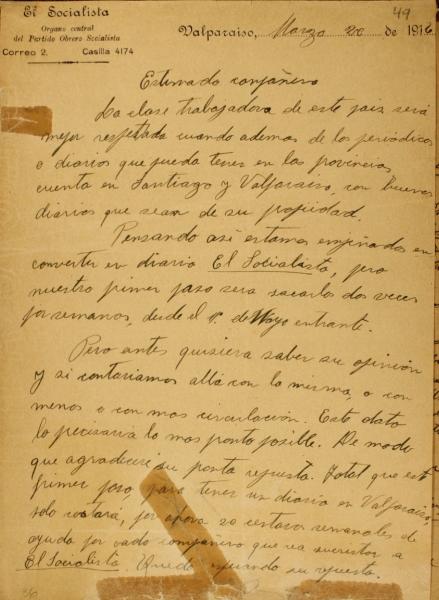 El Socialista
Organo central
del Partido Obrero Socialista
Correo 2. Casilla 4174
49
Valparaiso, Marzo 20 de 1916
Estimado compañero
La clase trabajadora de este pais será
mejor respetada cuando ademas de los periódicos
o diarios que pueda tener en las provincias
cuenta en Santiago y Valparaiso, con buenos
diarios que sean de su propiedad.
Pensando asi estamos empeñados en
convertir en diario El Socialista, pero
nuestro primer paso sera sacarlo dos veces
por semanas, desde el 1º de Mayo entrante.
Pero antes quisiera saber su opinión
y si contariamos allá con la misma, o con
menos o con mas circulación. Este dato
lo precisaria lo mas pronto posible. De modo
que agradeceré su pronta repuesta. Total que este
primer paso, para tener un diario en Valparaiso,
solo costará, por ahora 20 centavos semanales de
ayuda por cada compañero que sea suscritor a
El Socialista. Quedo esperando su repuesta.